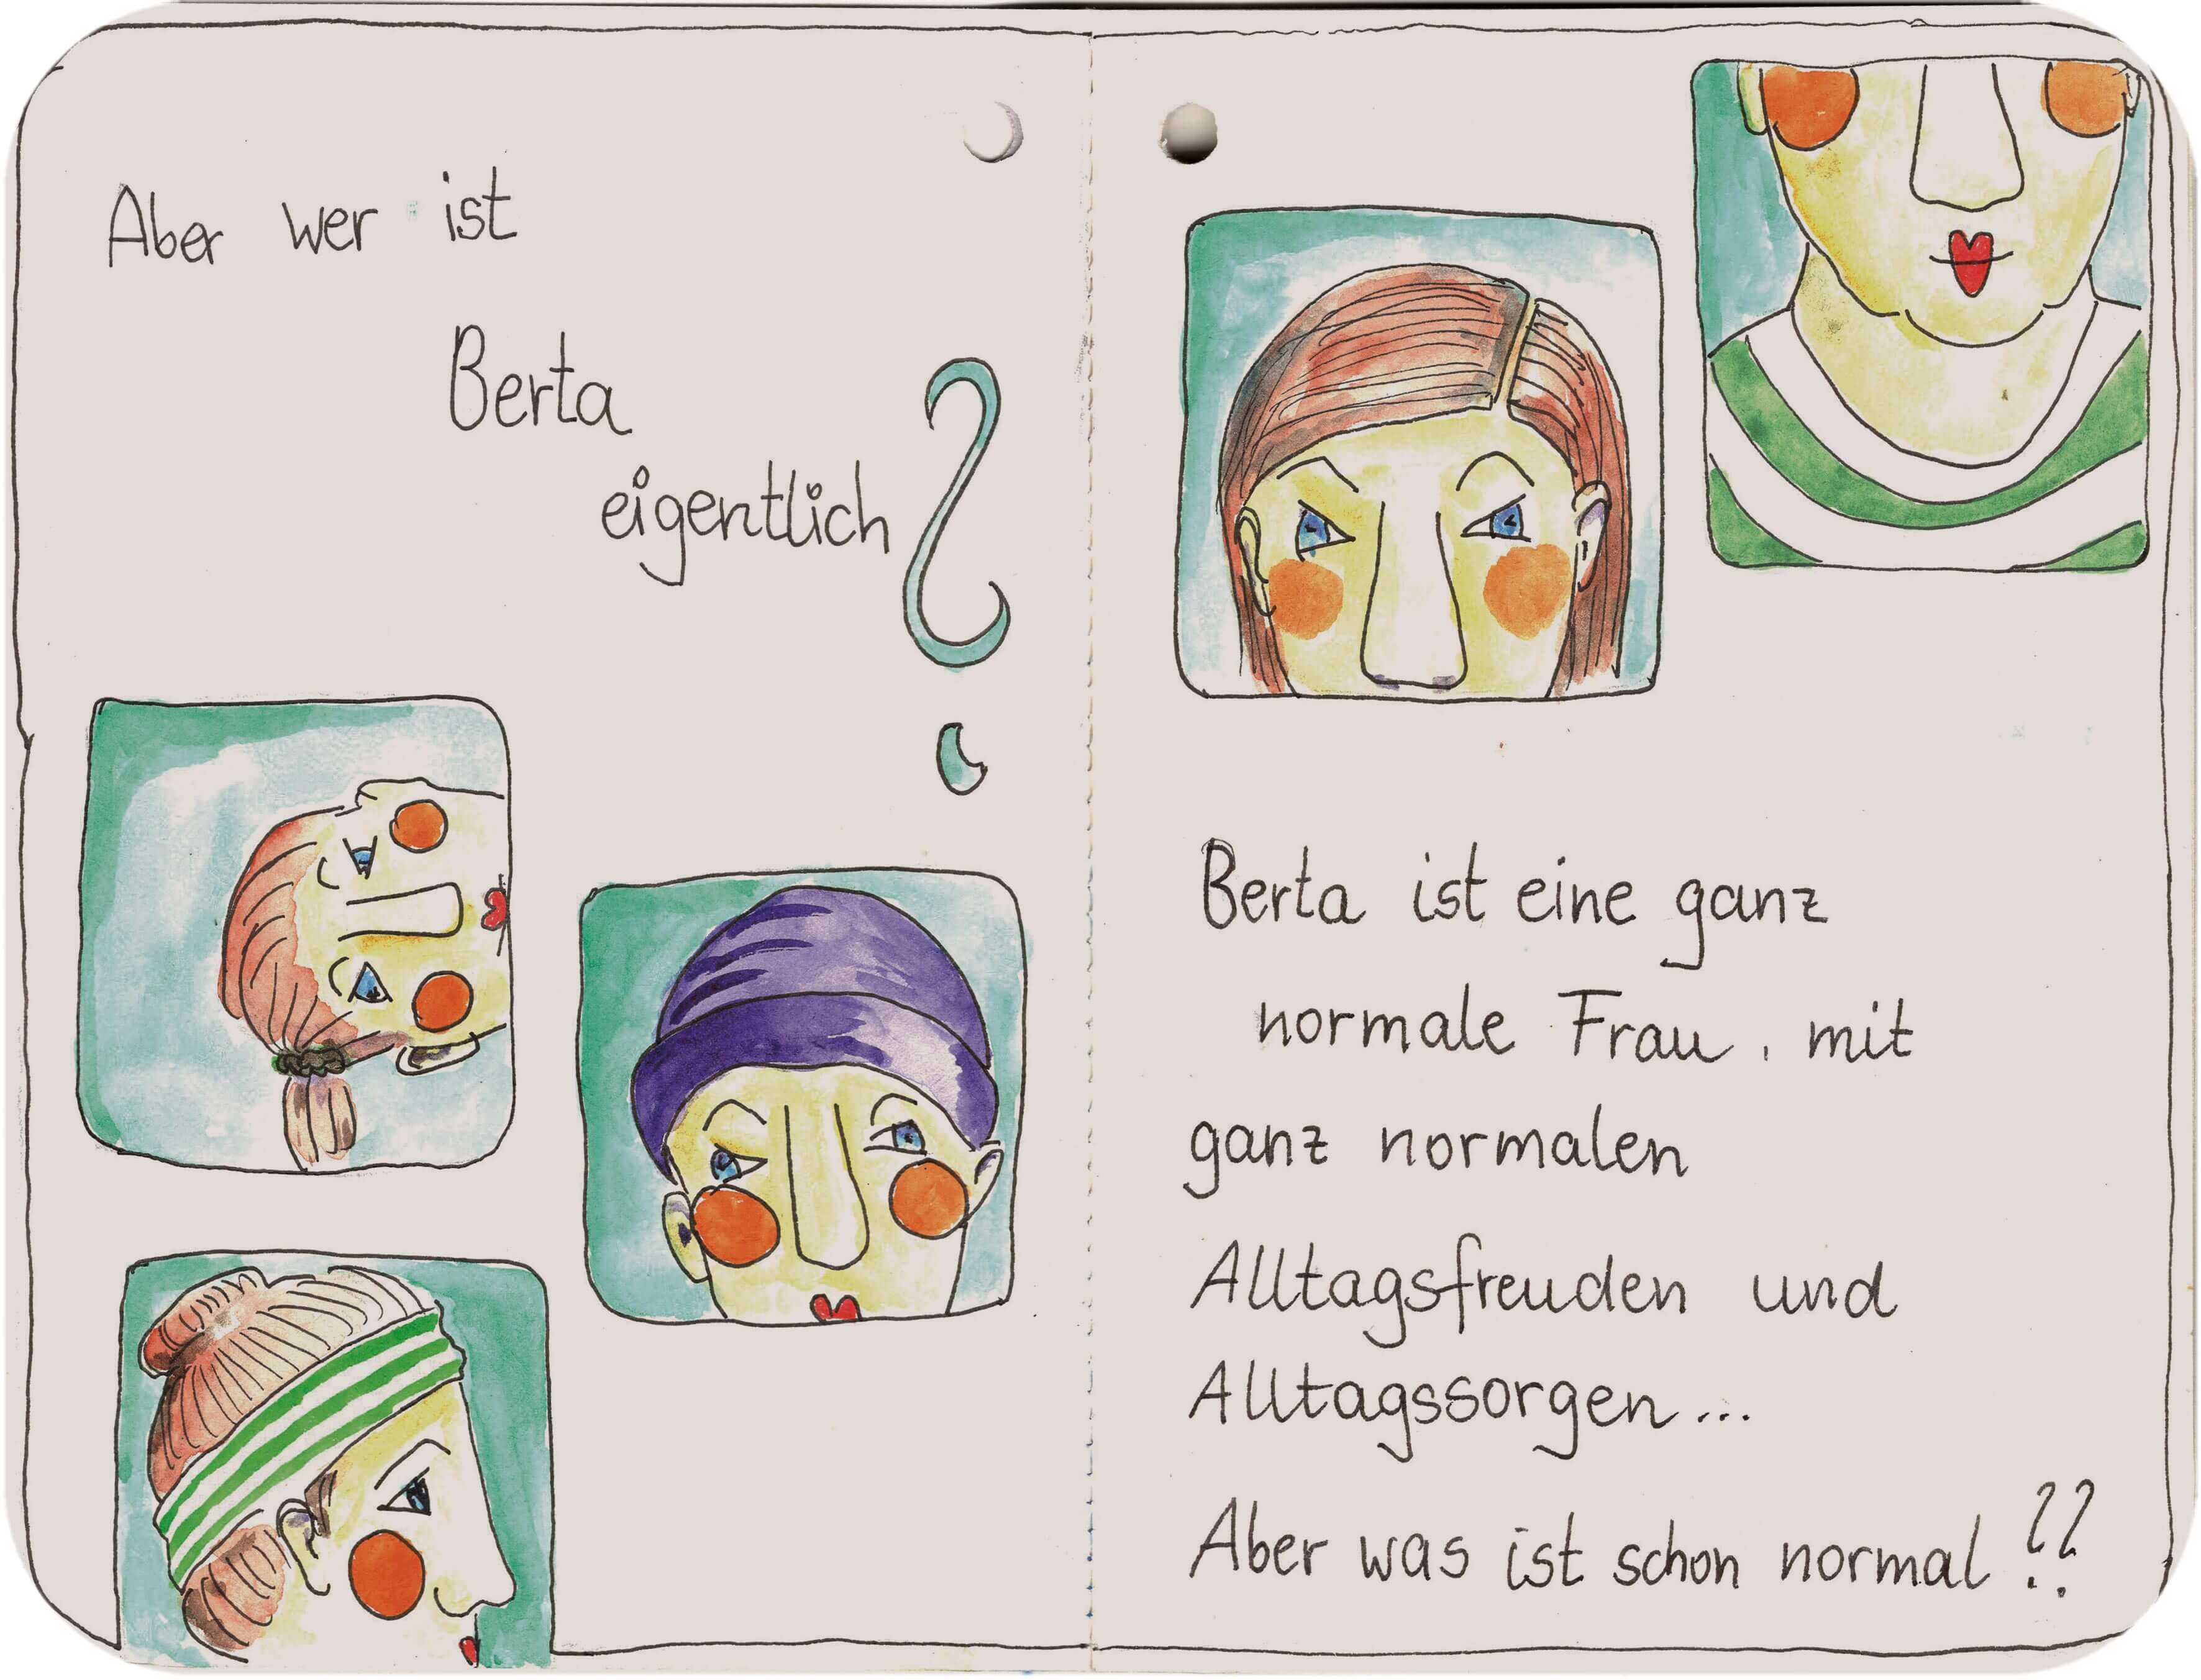 Aber wer ist
Berta
eigentlich?
Berta ist eine ganz
normale Frau, mit
ganz normalen
Alltagsfreuden und
Alltagssorgen...
Aber was ist schon normal??